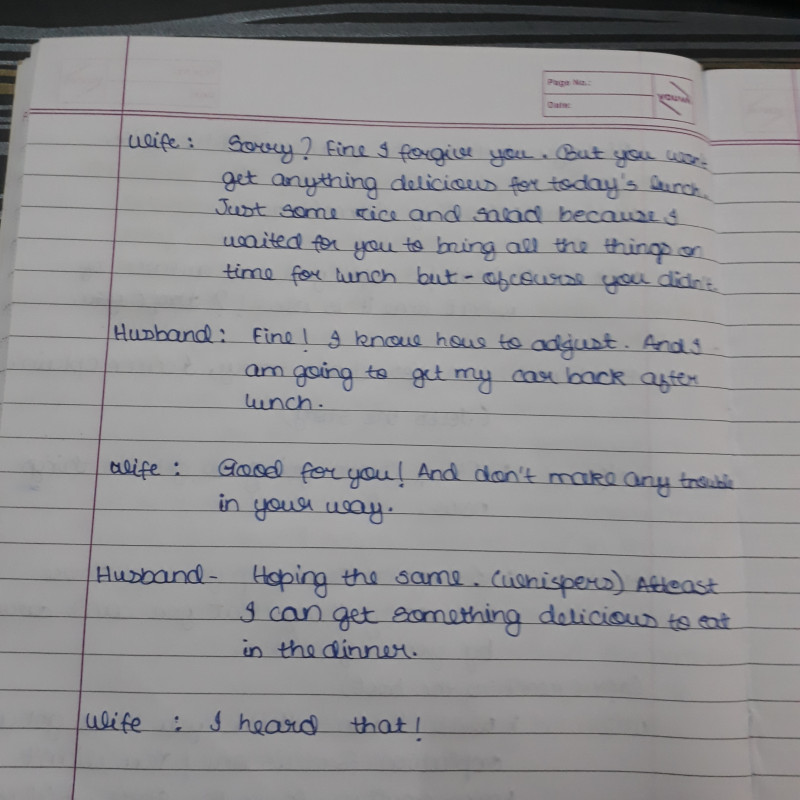 Page No.:
Date:
YOUVA
Wife : Sorry? Fine I forgive you. But you won't
get anything delicious for today's lunch.
Just some rice and salad because I
waited for you to bring all the things on
time for lunch but - ofcourse you didn't.
Husband : Fine! I know how to adjust. And I
am going to get my car back after
lunch.
Wife : Good for you! And don't make any trouble
in your way.
Husband - Hoping the same. (whispers) Atleast
I can get something delicious to eat
in the dinner.
Wife : I heard that!